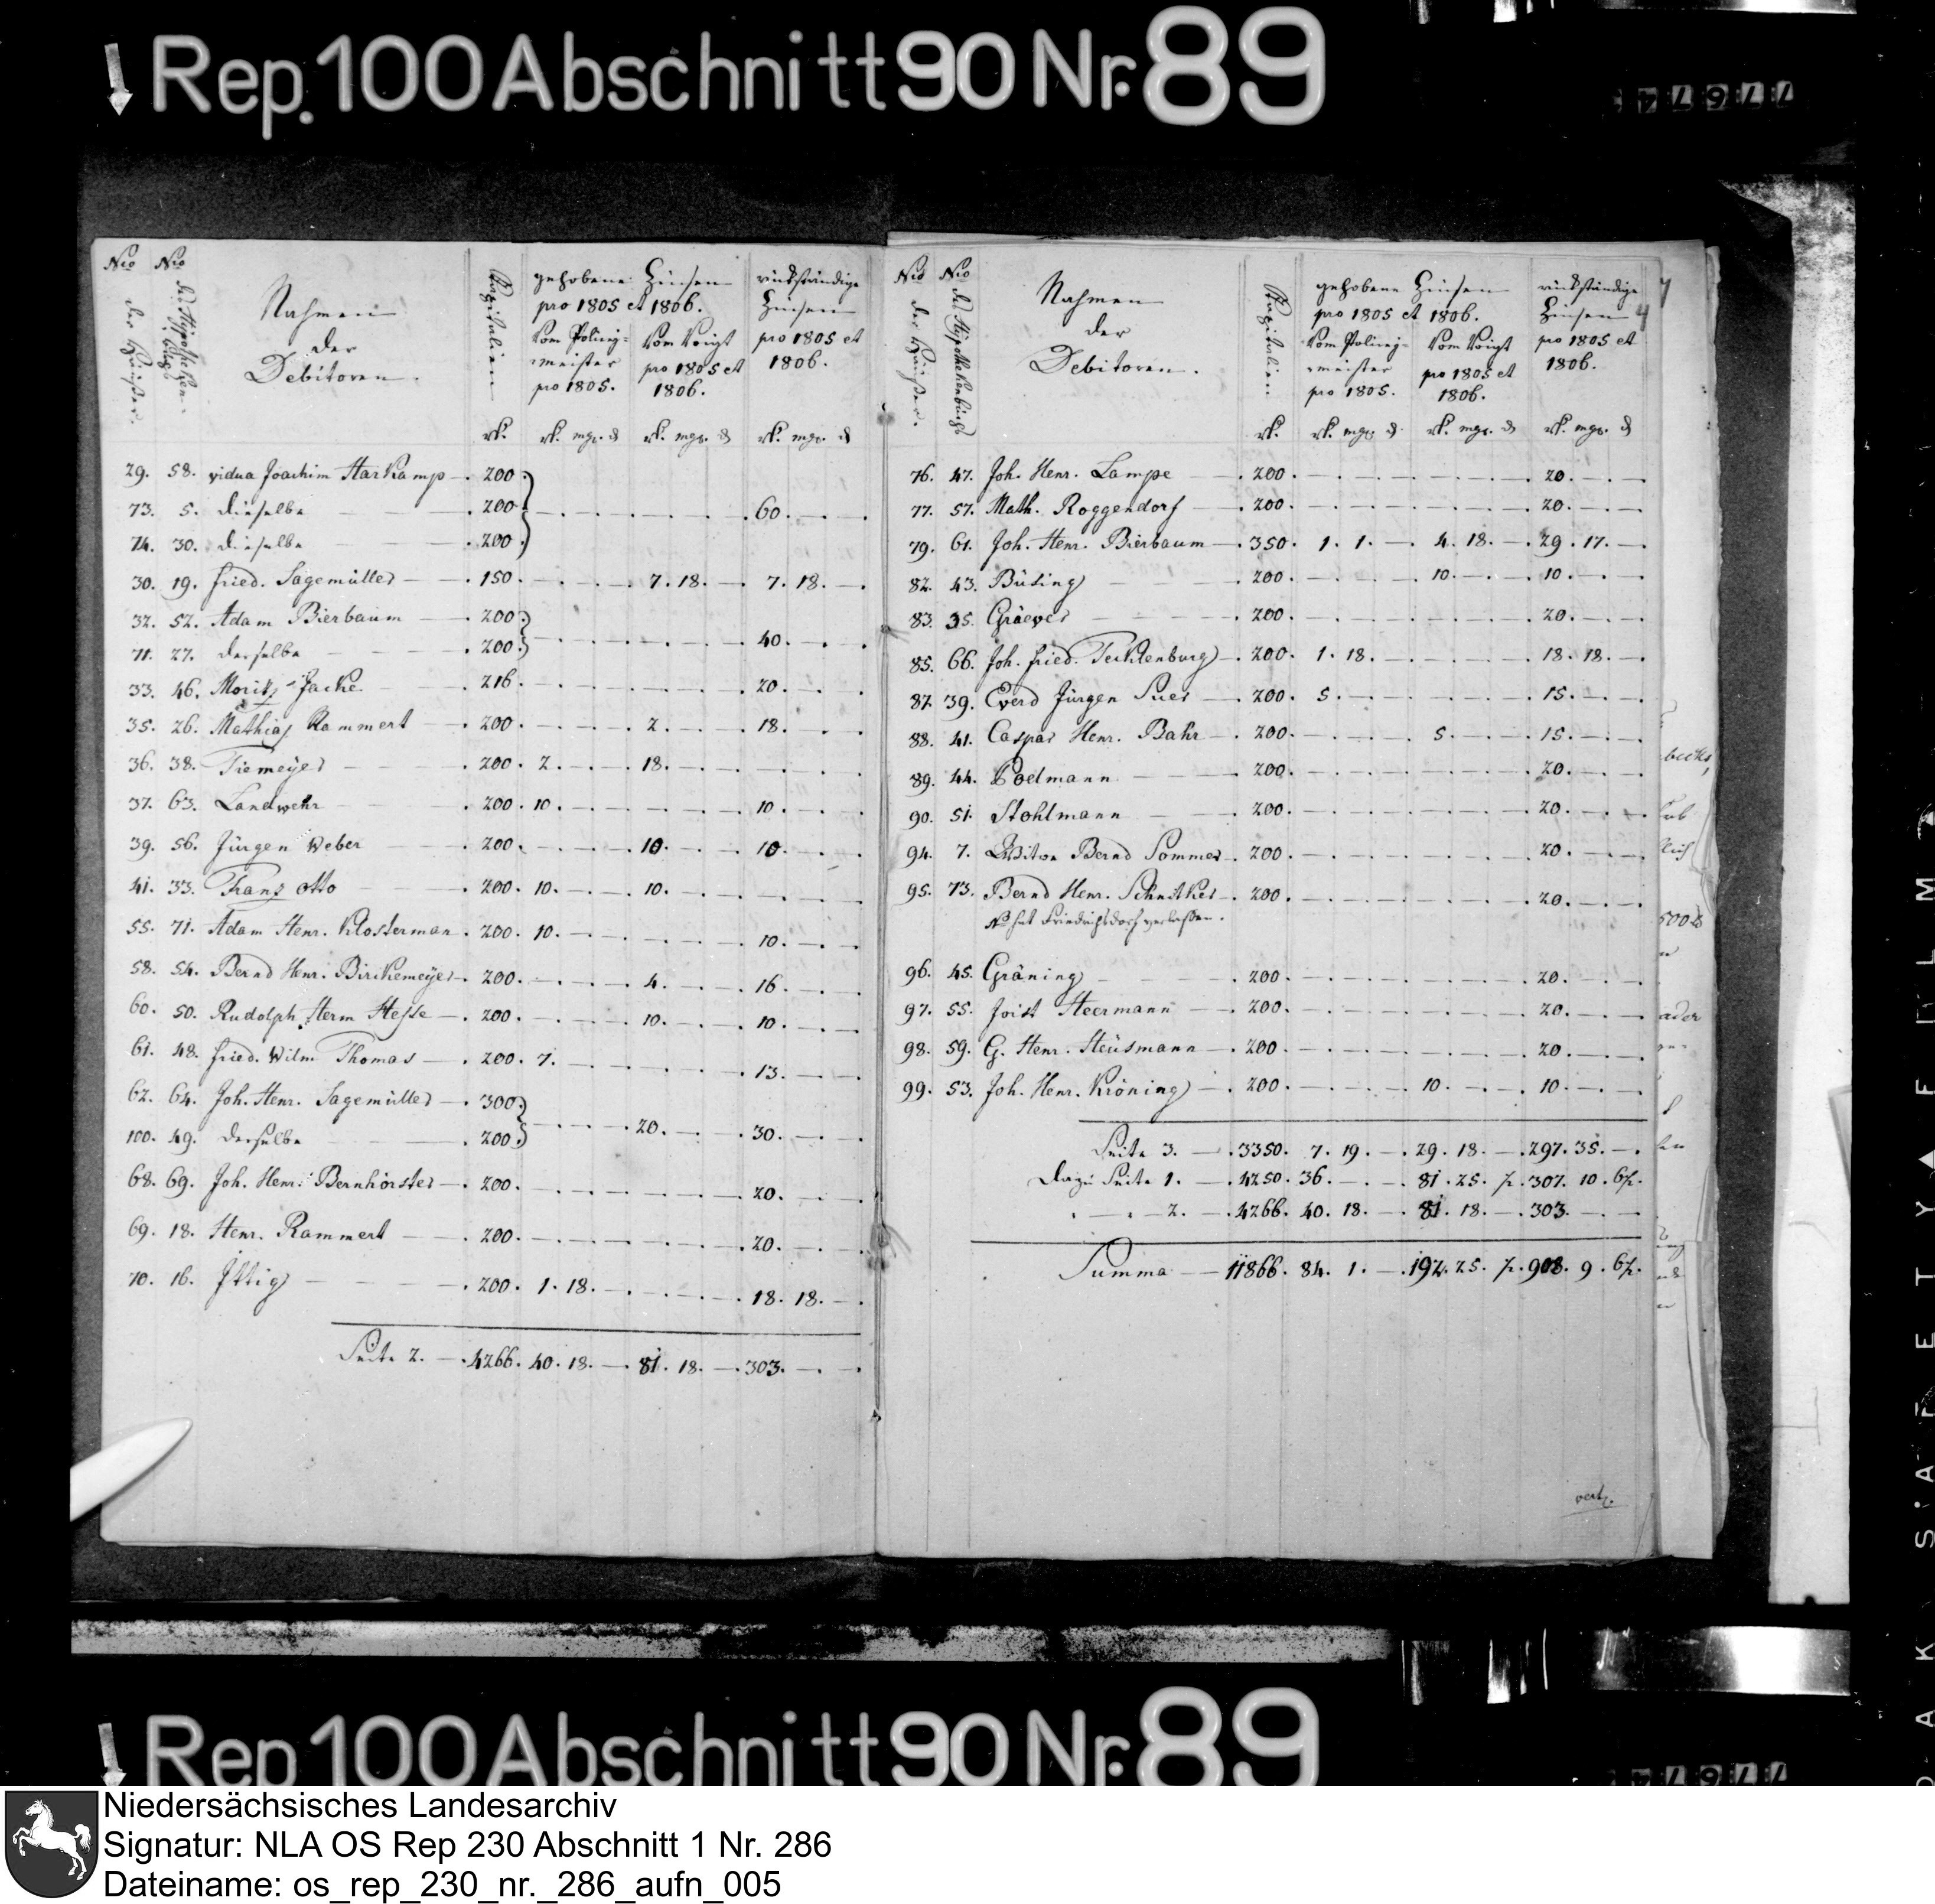 Rep. 100 Abschnitt 90 Nr. 89
77674
Nro der Häuser.
Nro des Hypotheken-buchs
Nahmen
der
Debitoren.
Kapitalien
gehobene Zinsen
pro 1805 et 1806.
vom Policey-
meister
pro 1805.
vom Voigt
pro 1805 et
1806.
rückständige
Zinsen
pro 1805 et
1806.
rt. rt. mgr. d rt. mgr. d rt. mgr. d
29. 58. vidua Joachim Starkamp 200
73. 5. dieselbe 200 60.
74. 30. dieselbe 200
30. 19. Fried. Sagemüller 150. 7. 18. 7. 18.
32. 52. Adam Bierbaum 200
71. 27. derselbe 200 40.
33. 46. Moritz Jacke 216 20.
35. 26. Mathias Rammert 200. 2. 18.
36. 38. Tiemeyer 200. 2. 18.
37. 63. Landwehr 200. 10. 10.
39. 56. Jürgen Weber 200. 10. 10.
41. 33. Franz Otto 200. 10. 10.
55. 71. Adam Henr. Klosterman 200. 10. 10.
58. 54. Bernd Henr. Birckemeyer 200. 4. 16.
60. 50. Rudolph Herm Hesse 200. 10. 10.
61. 48. Fried. Wilm Thomas 200. 7. 13.
62. 64. Joh. Henr. Sagemüller 300
100. 49. derselbe 200 20. 30.
68. 69. Joh. Henr. Bernhörster 200. 20.
69. 18. Henr. Rammert 200. 20.
70. 16. Ittig 200. 1. 18. 18. 18.
Seite 2. 4266. 40. 18. 81. 18. 303.
Nro der Häuser.
Nro des Hypothekenbuchs
Nahmen
der
Debitoren.
Kapitalien
gehobene Zinsen
pro 1805 et 1806.
vom Policey-
meister
pro 1805.
vom Voigt
pro 1805 et
1806.
rückständige
Zinsen
pro 1805 et
1806.
rt. rt. mgr. d rt. mgr. d rt. mgr. d
76. 47. Joh. Henr. Lampe 200. 20.
77. 57. Math. Roggendorf 200. 20.
79. 61. Joh. Henr. Bierbaum 350. 1. 1. 4. 18. 29. 17.
82. 43. Büsing 200. 10. 10.
83. 35. Gräever 200. 20.
85. 66. Joh. Fried. Tecklenburg 200. 1. 18. 18. 18.
87. 39. Everd Jürgen Suer 200. 5. 15.
88. 41. Caspar Henr. Bahr 200. 5. 15.
89. 44. Poelmann 200. 20.
90. 51. Stohlmann 200. 20.
94. 7. Witwe Bernd Sommer 200. 20.
95. 73. Bernd Henr. Schnitker 200. 20.
NB hat Friedrichsdorf verlassen.
96. 45. Gräning 200. 20.
97. 55. Joist Heermann 200. 20.
98. 59. G. Henr. Heüsmann 200. 20.
99. 53. Joh. Henr. Kröning 200. 10. 10.
Seite 3. 3350. 7. 19. 29. 18. 297. 35.
Dazu Seite 1. 4250. 36. 81. 25. 7. 307. 10. 6 7.
2. 4266. 40. 18. 81. 18. 303.
Summa 11866. 84. 1. 192. 25. 7. 908. 9. 6 7.
vert.
Rep 100 Abschnitt 90 Nr. 89
77674
Niedersächsisches Landesarchiv
Signatur: NLA OS Rep 230 Abschnitt 1 Nr. 286
Dateiname: os_rep_230_nr._286_aufn_005